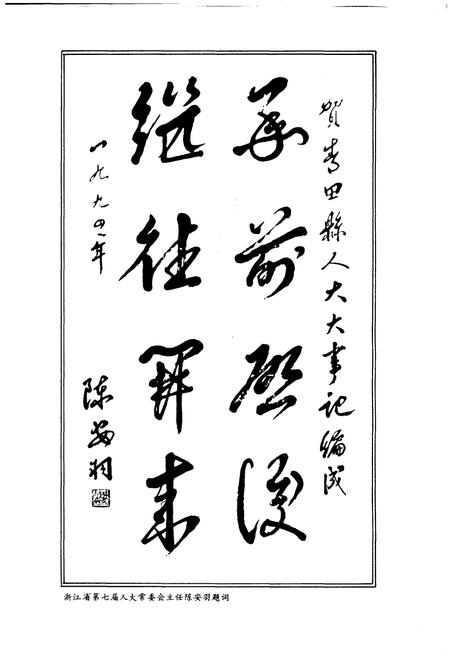 贺青田縣人大大事记编成
承前啓後
継往開来
一九九四年
陈安羽
浙江省第七届人大常委会主任陈安羽题词